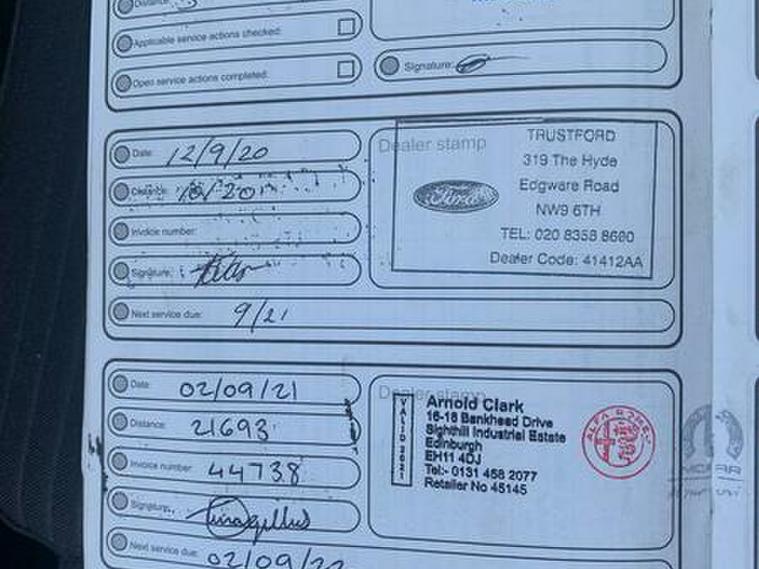 Distance:
Applicable service actions checked:
Open service actions completed:
Signature:
Date: 12/9/20
Distance:
Invoice number:
Signature:
Next service due: 9/21
Dealer stamp
TRUSTFORD
319 The Hyde
Edgware Road
NW9 6TH
TEL: 020 8358 8600
Dealer Code: 41412AA
Ford
Date: 02/09/21
Distance: 21693
Invoice number: 44738
Signature:
Next service due: 02/09/22
Dealer stamp
VALID 2021
Arnold Clark
16-18 Bankhead Drive
Sighthill Industrial Estate
Edinburgh
EH11 4DJ
Tel:- 0131 458 2077
Retailer No 45145
ALFA ROMEO